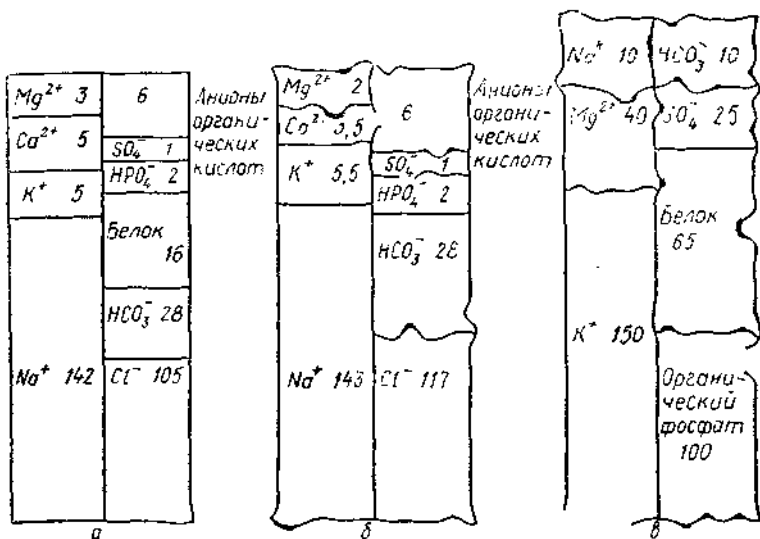 Mg²⁺ 3
Ca²⁺ 5
K⁺ 5
Na⁺ 142
6
SO₄⁻ 1
HPO₄⁻ 2
Белок
16
HCO₃⁻ 28
Cl⁻ 105
а
Анионы
органи-
ческих
кислот
Mg²⁺ 2
Ca²⁻ 5,5
K⁺ 5,5
Na⁺ 143
6
SO₄⁻ 1
HPO₄⁻ 2
HCO₃⁻ 28
Cl⁻ 117
б
Анионы
органи-
ческих
кислот
Na⁺ 10
Mg²⁺ 40
K⁺ 150
HCO₃⁻ 10
SO₄⁻ 25
Белок
65
Органи-
ческий
фосфат
100
в